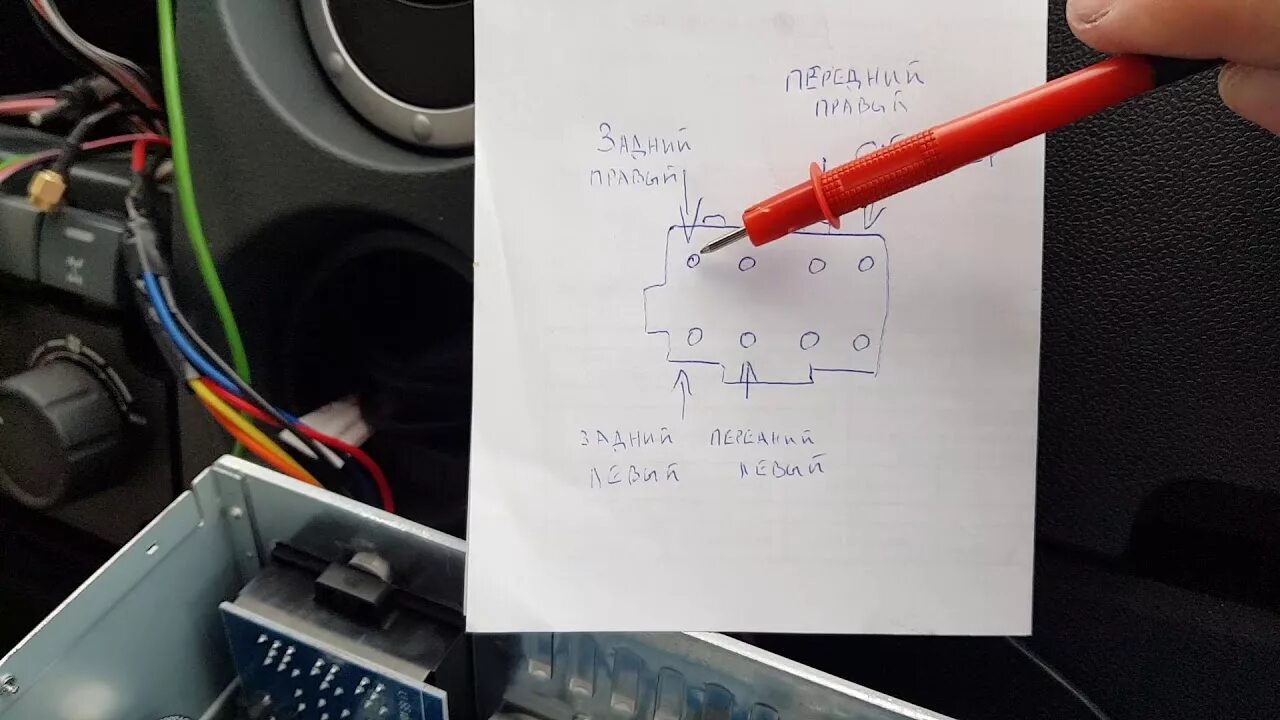 ПЕРЕДНИЙ
ПРАВЫЙ
ЗАДНИЙ
ПРАВЫЙ
ЗАДНИЙ ПЕРЕДНИЙ
ЛЕВЫЙ ЛЕВЫЙ